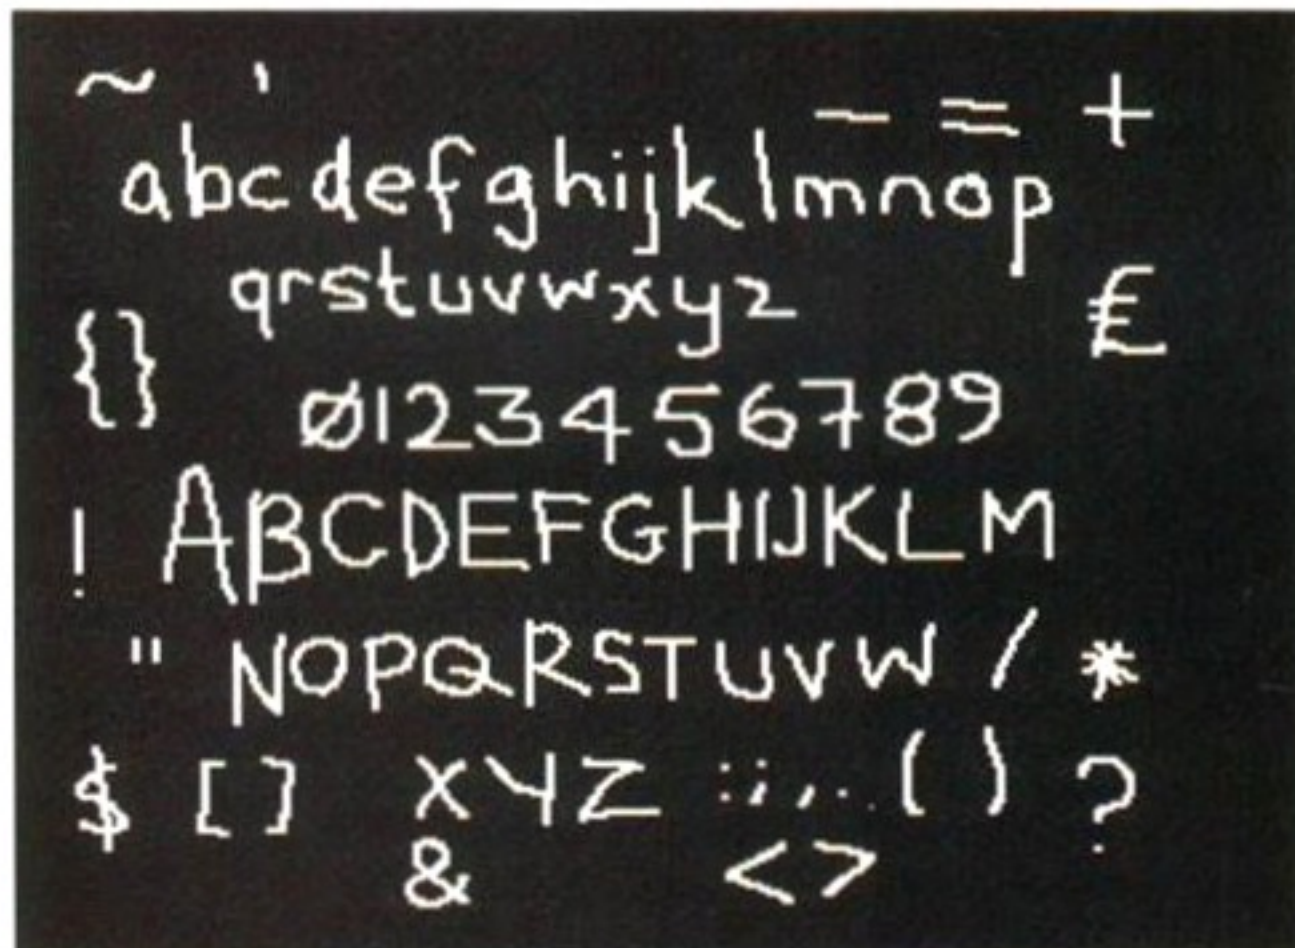 ~ ' - = +
abcdefghijklmnop
qrstuvwxyz £
{} Ø123456789
! ABCDEFGHIJKLM
" NOPQRSTUVW / *
$ [] XYZ :;,. () ?
& <>